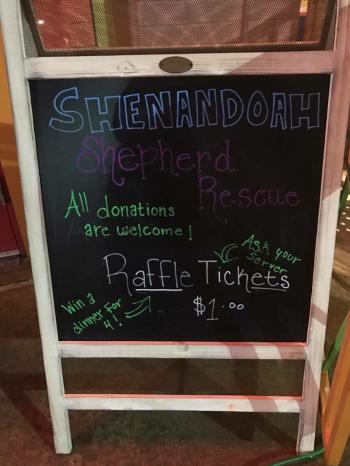 SHENANDOAH
Shepherd
Rescue
All donations
are welcome!
Ask your
Server
Raffle Tickets
$1.00
Win a
dinner for
4!